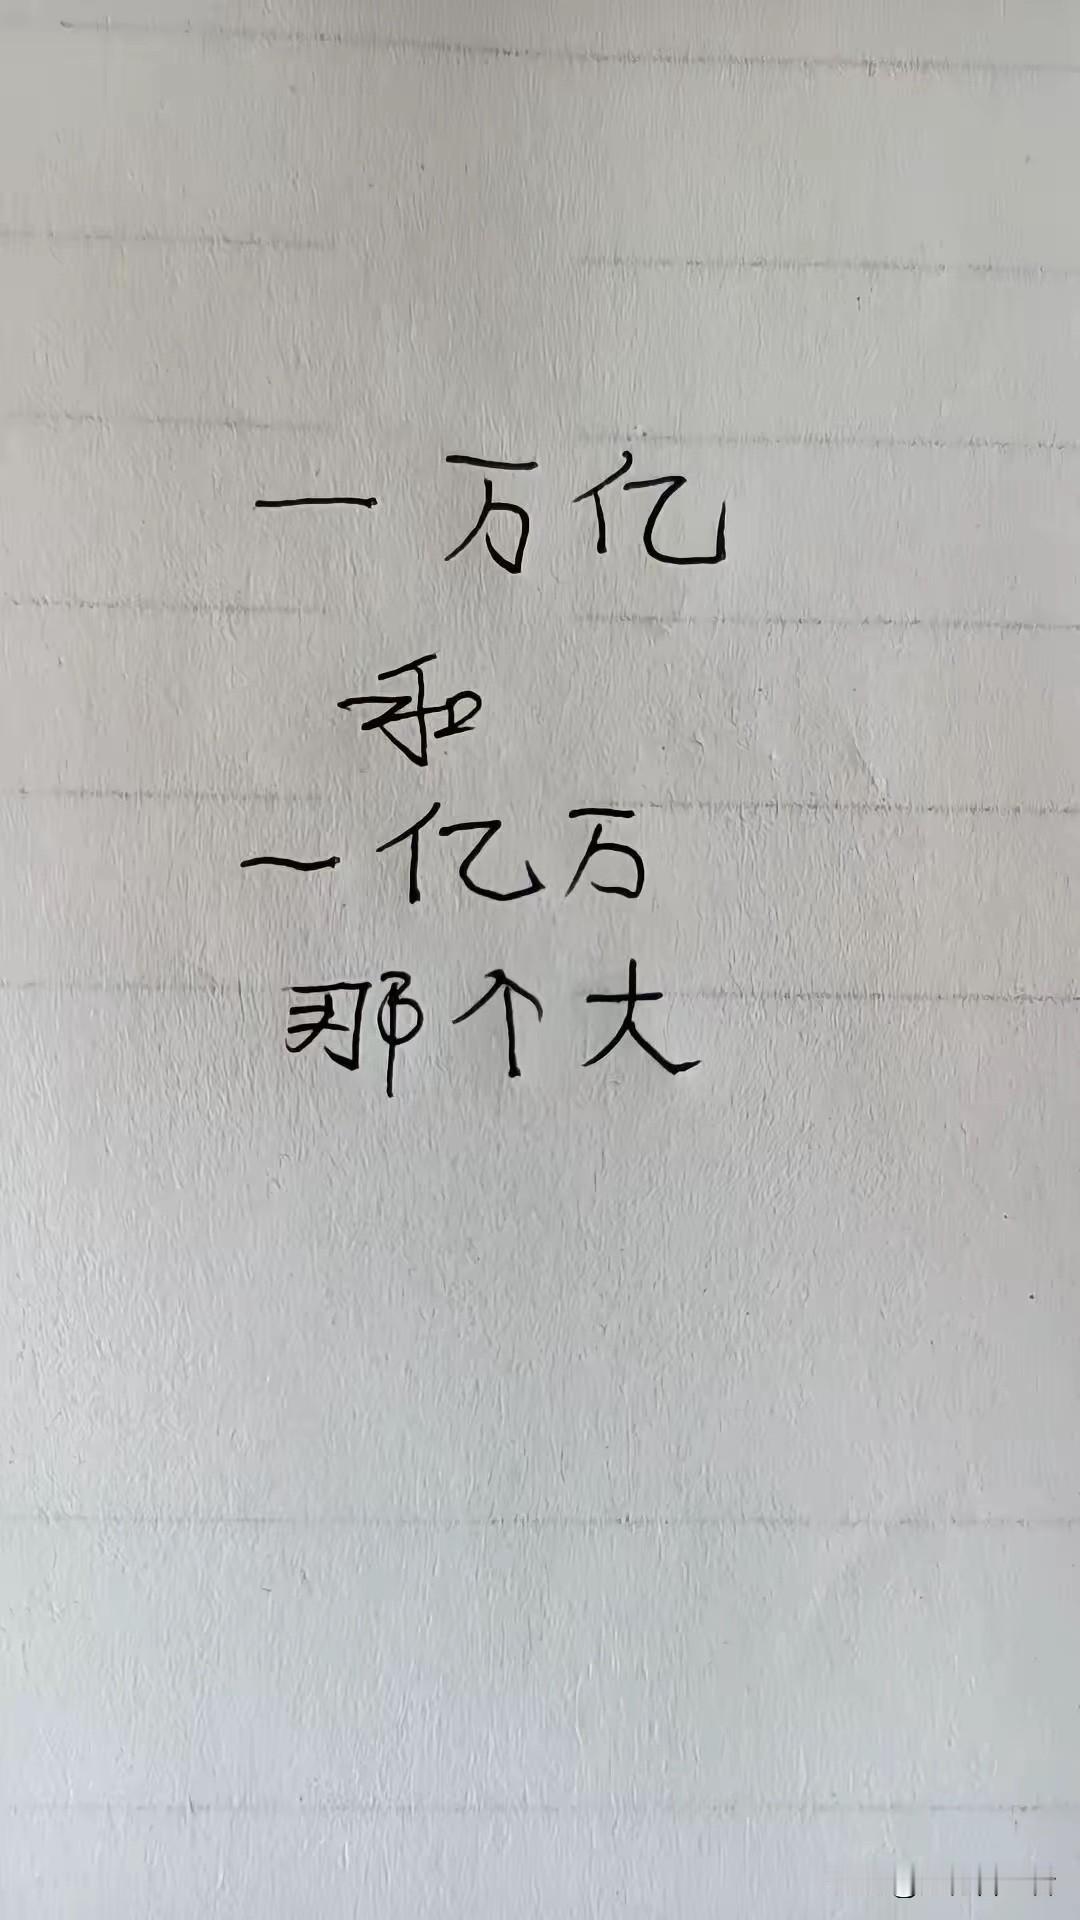 一万亿
和
一亿万
那个大